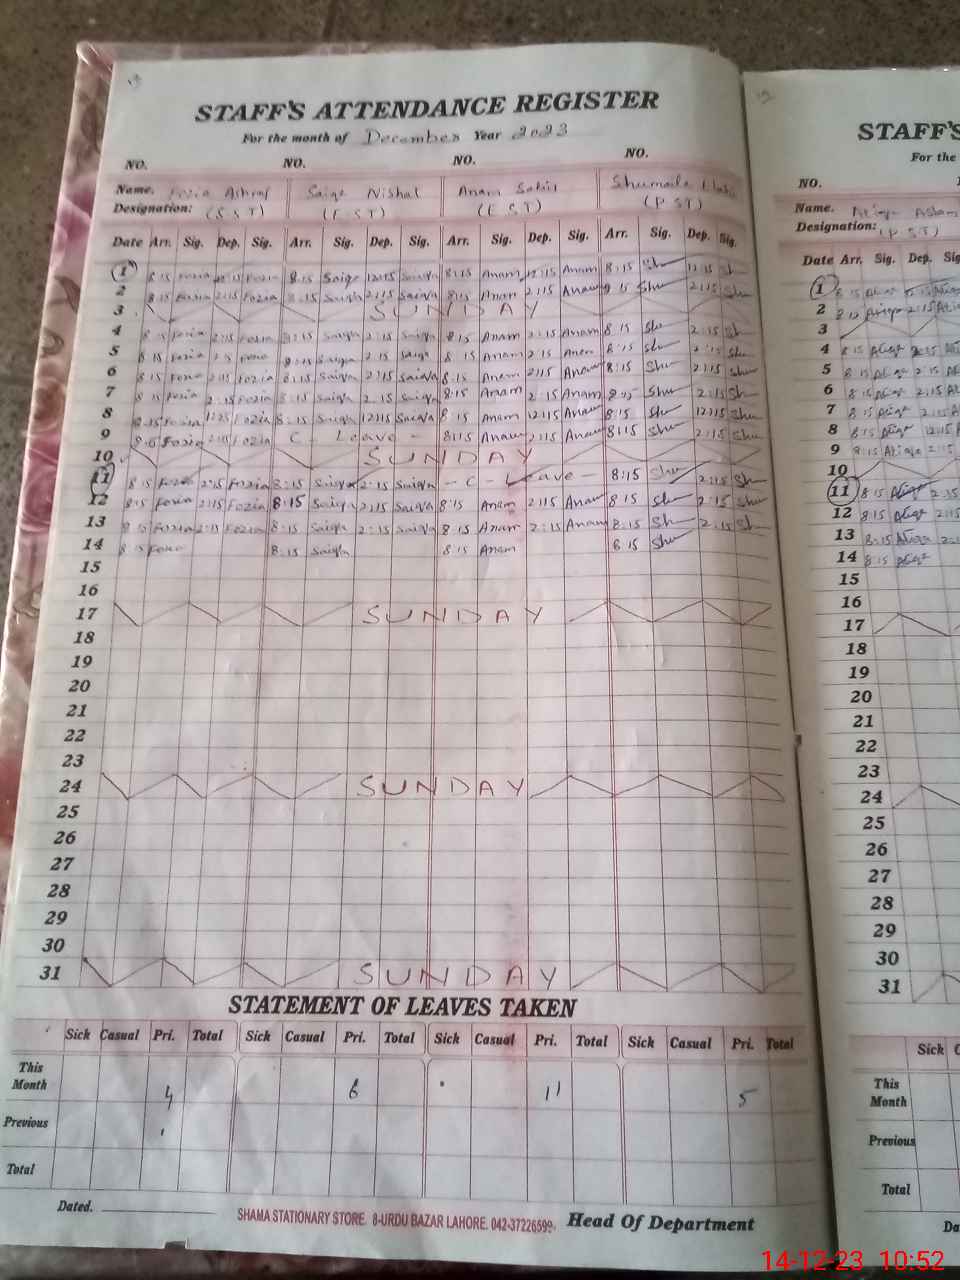 STAFF'S ATTENDANCE REGISTER
For the month of December Year 2023
NO. NO. NO. NO.
Name. Fozia Ashraf Saiqa Nishat Anam Shumaila
Designation: (S ST) (E ST) (E ST) (P ST)
Date Arr. Sig. Dep. Sig. Arr. Sig. Dep. Sig. Arr. Sig. Dep. Sig. Arr. Sig. Dep. Sig.
1 8:15 Fozia 12:15 Fozia 8:15 Saiqa 12:15 Saiqa 8:15 Anam 12:15 Anam 8:15 Shu 12:15 Sh
2 8:15 Fozia 2:15 Fozia 8:15 Saiqa 2:15 Saiqa 8:15 Anam 2:15 Anam 8:15 Shu 2:15 Shu
3 SUNDAY
4 8:15 Fozia 2:15 Fozia 8:15 Saiqa 2:15 Saiqa 8:15 Anam 2:15 Anam 8:15 Shu 2:15 Sh
5 8:15 Fozia 2:15 Fozia 8:15 Saiqa 2:15 Saiqa 8:15 Anam 2:15 Anam 8:15 Shu 2:15 Shu
6 8:15 Fozia 2:15 Fozia 8:15 Saiqa 2:15 Saiqa 8:15 Anam 2:15 Anam 8:15 Shu 2:15 Shu
7 8:15 Fozia 2:15 Fozia 8:15 Saiqa 2:15 Saiqa 8:15 Anam 2:15 Anam 8:15 Shu 2:15 Shu
8 8:15 Fozia 12:15 Fozia 8:15 Saiqa 12:15 Saiqa 8:15 Anam 12:15 Anam 8:15 Shu 12:15 Shu
9 8:15 Fozia 2:15 Fozia C - Leave - 8:15 Anam 2:15 Anam 8:15 Shu 2:15 Shu
10 SUNDAY
11 8:15 Fozia 2:15 Fozia 8:15 Saiqa 2:15 Saiqa - C - Leave - 8:15 Shu 2:15 Sh
12 8:15 Fozia 2:15 Fozia 8:15 Saiqa 2:15 Saiqa 8:15 Anam 2:15 Anam 8:15 Shu 2:15 Shu
13 8:15 Fozia 2:15 Fozia 8:15 Saiqa 2:15 Saiqa 8:15 Anam 2:15 Anam 8:15 Shu 2:15 Sh
14 8:15 Fozia 8:15 Saiqa 8:15 Anam 8:15 Shu
15
16
17 SUNDAY
18
19
20
21
22
23
24 SUNDAY
25
26
27
28
29
30
31 SUNDAY
STATEMENT OF LEAVES TAKEN
Sick Casual Pri. Total Sick Casual Pri. Total Sick Casual Pri. Total Sick Casual Pri. Total
This Month 4 6 11 5
Previous
Total
Dated.
SHAMA STATIONARY STORE. 8-URDU BAZAR LAHORE. 042-37226599
Head Of Department
STAFF'S
For the
NO.
Name. Atiqa Aslam
Designation: (P ST)
Date Arr. Sig. Dep. Sig.
1 8:15 Atiqa
2 8:15 Atiqa 2:15
3
4 8:15 Atiqa 2:15
5 8:15 Atiqa 2:15
6 8:15 Atiqa 2:15
7 8:15 Atiqa 2:15
8 8:15 Atiqa 12:15
9 8:15 Atiqa 2:15
10
11 8:15 Atiqa 2:15
12 8:15 Atiqa 2:15
13 8:15 Atiqa 2:
14 8:15 Atiqa
15
16
17
18
19
20
21
22
23
24
25
26
27
28
29
30
31
Sick
This Month
Previous
Total
14-12-23 10:52